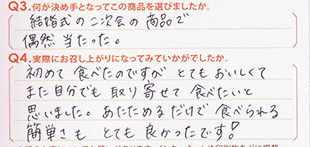 Q3.何が決め手となってこの商品を選びましたか。
結婚式の二次会の商品で
偶然当たった。
Q4.実際にお召し上がりになってみていかがでしたか。
初めて食べたのですが とてもおいしくて
また自分でも取り寄せて食べたいと
思いました。あたためるだけで食べられる
簡単さも とても良かったです!